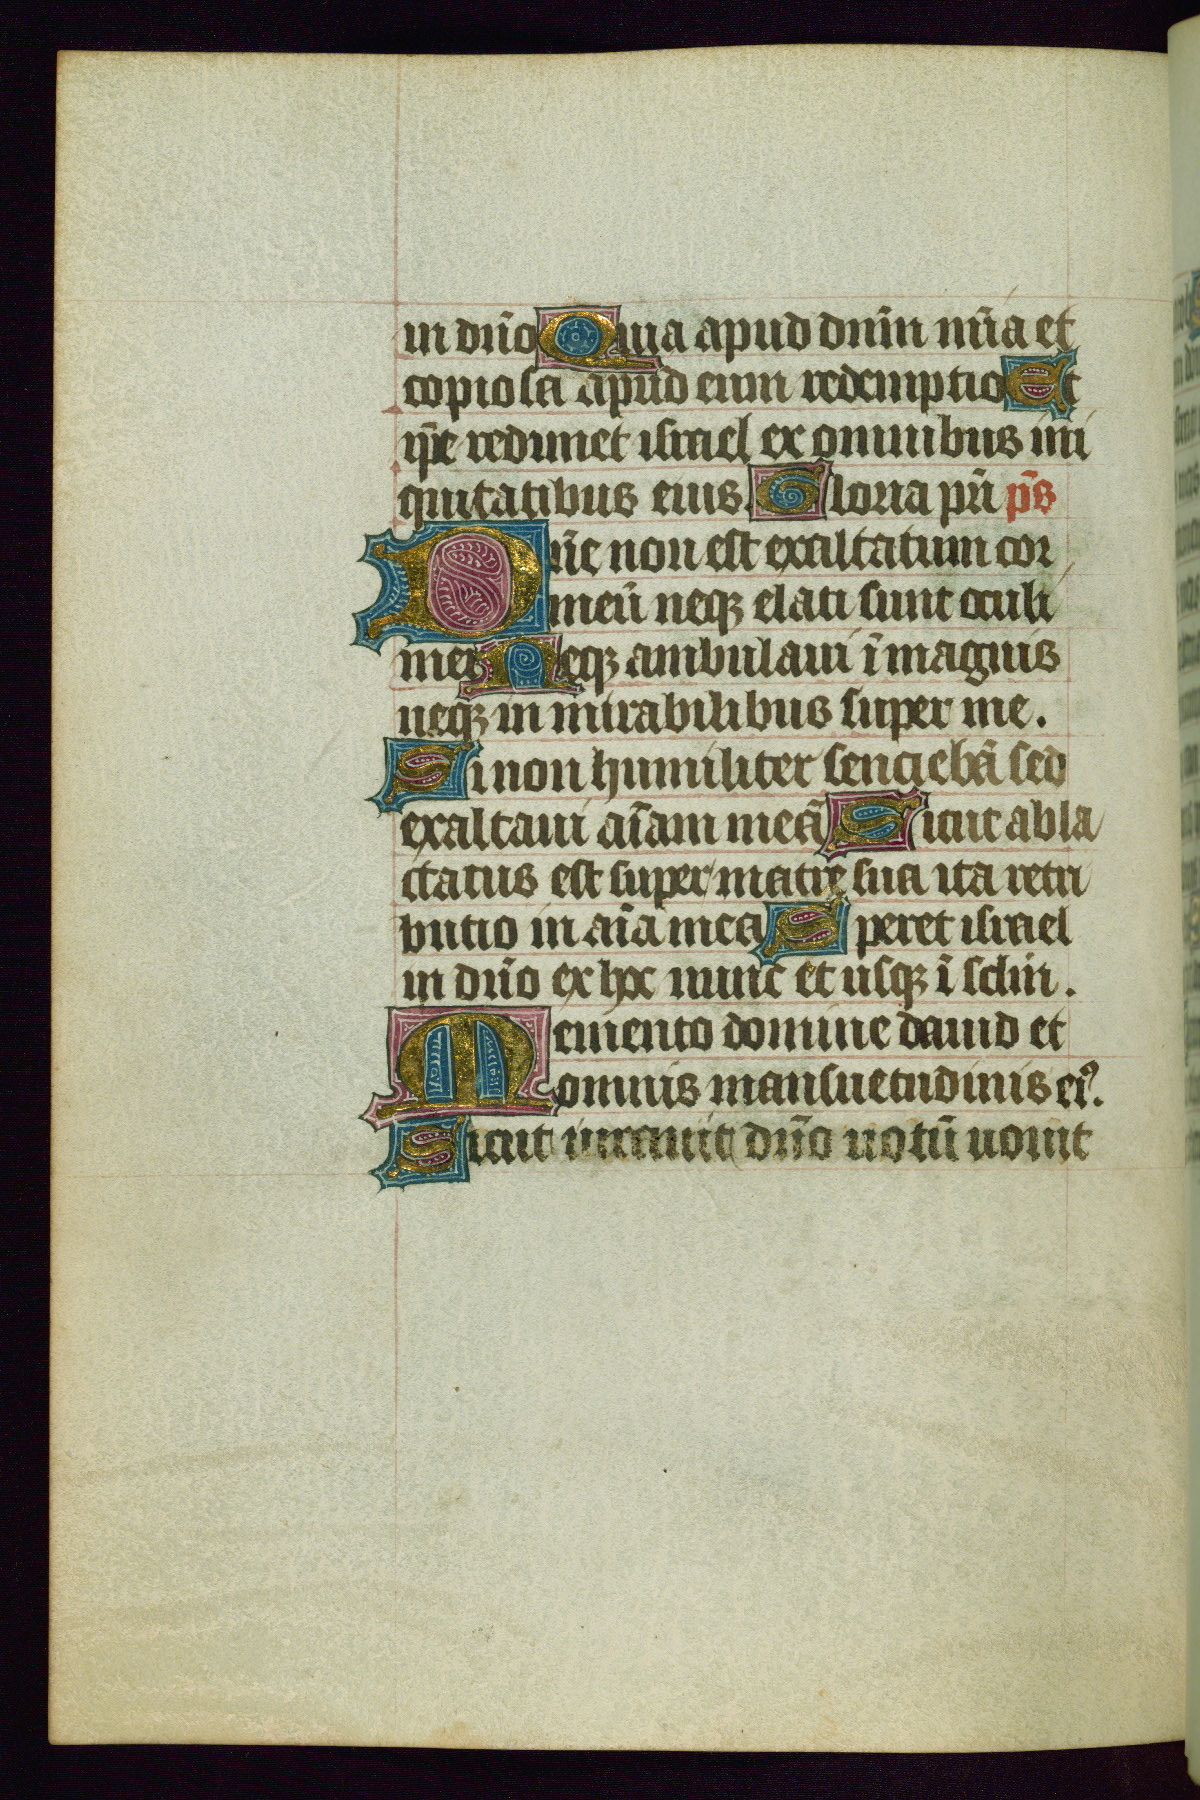 in dño Quia apud dnm̃ mĩa et
copiosa apud eum redemptio Et
ip̃e redimet israel ex omnibus ini
quitatibus eius. Gloria pr̃i p̃s
Dñe non est exaltatum cor
meũ neqꝫ elati sunt oculi
mei Neqꝫ ambulaui ĩ magnis
neqꝫ in mirabilibus super me.
Si non humiliter senciebã sed
exaltaui aĩam meã Sicut abla
ctatus est super matre sua ita retri
butio in aĩa mea Speret israel
in dño ex hoc nunc et usqꝫ ĩ sclm̃.
Memento domine dauid et
omnis mansuetudinis eiꝰ.
Sicut iurauit dño uotũ uouit